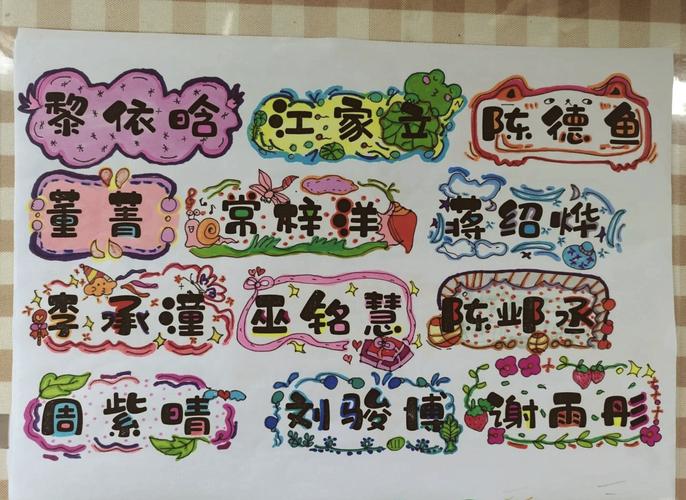 黎依晗 江家立 陈德鱼
董菁 常梓洋 蒋绍烨
李承潼 巫铭慧 陈邺丞
周紫晴 刘骏博 谢雨彤